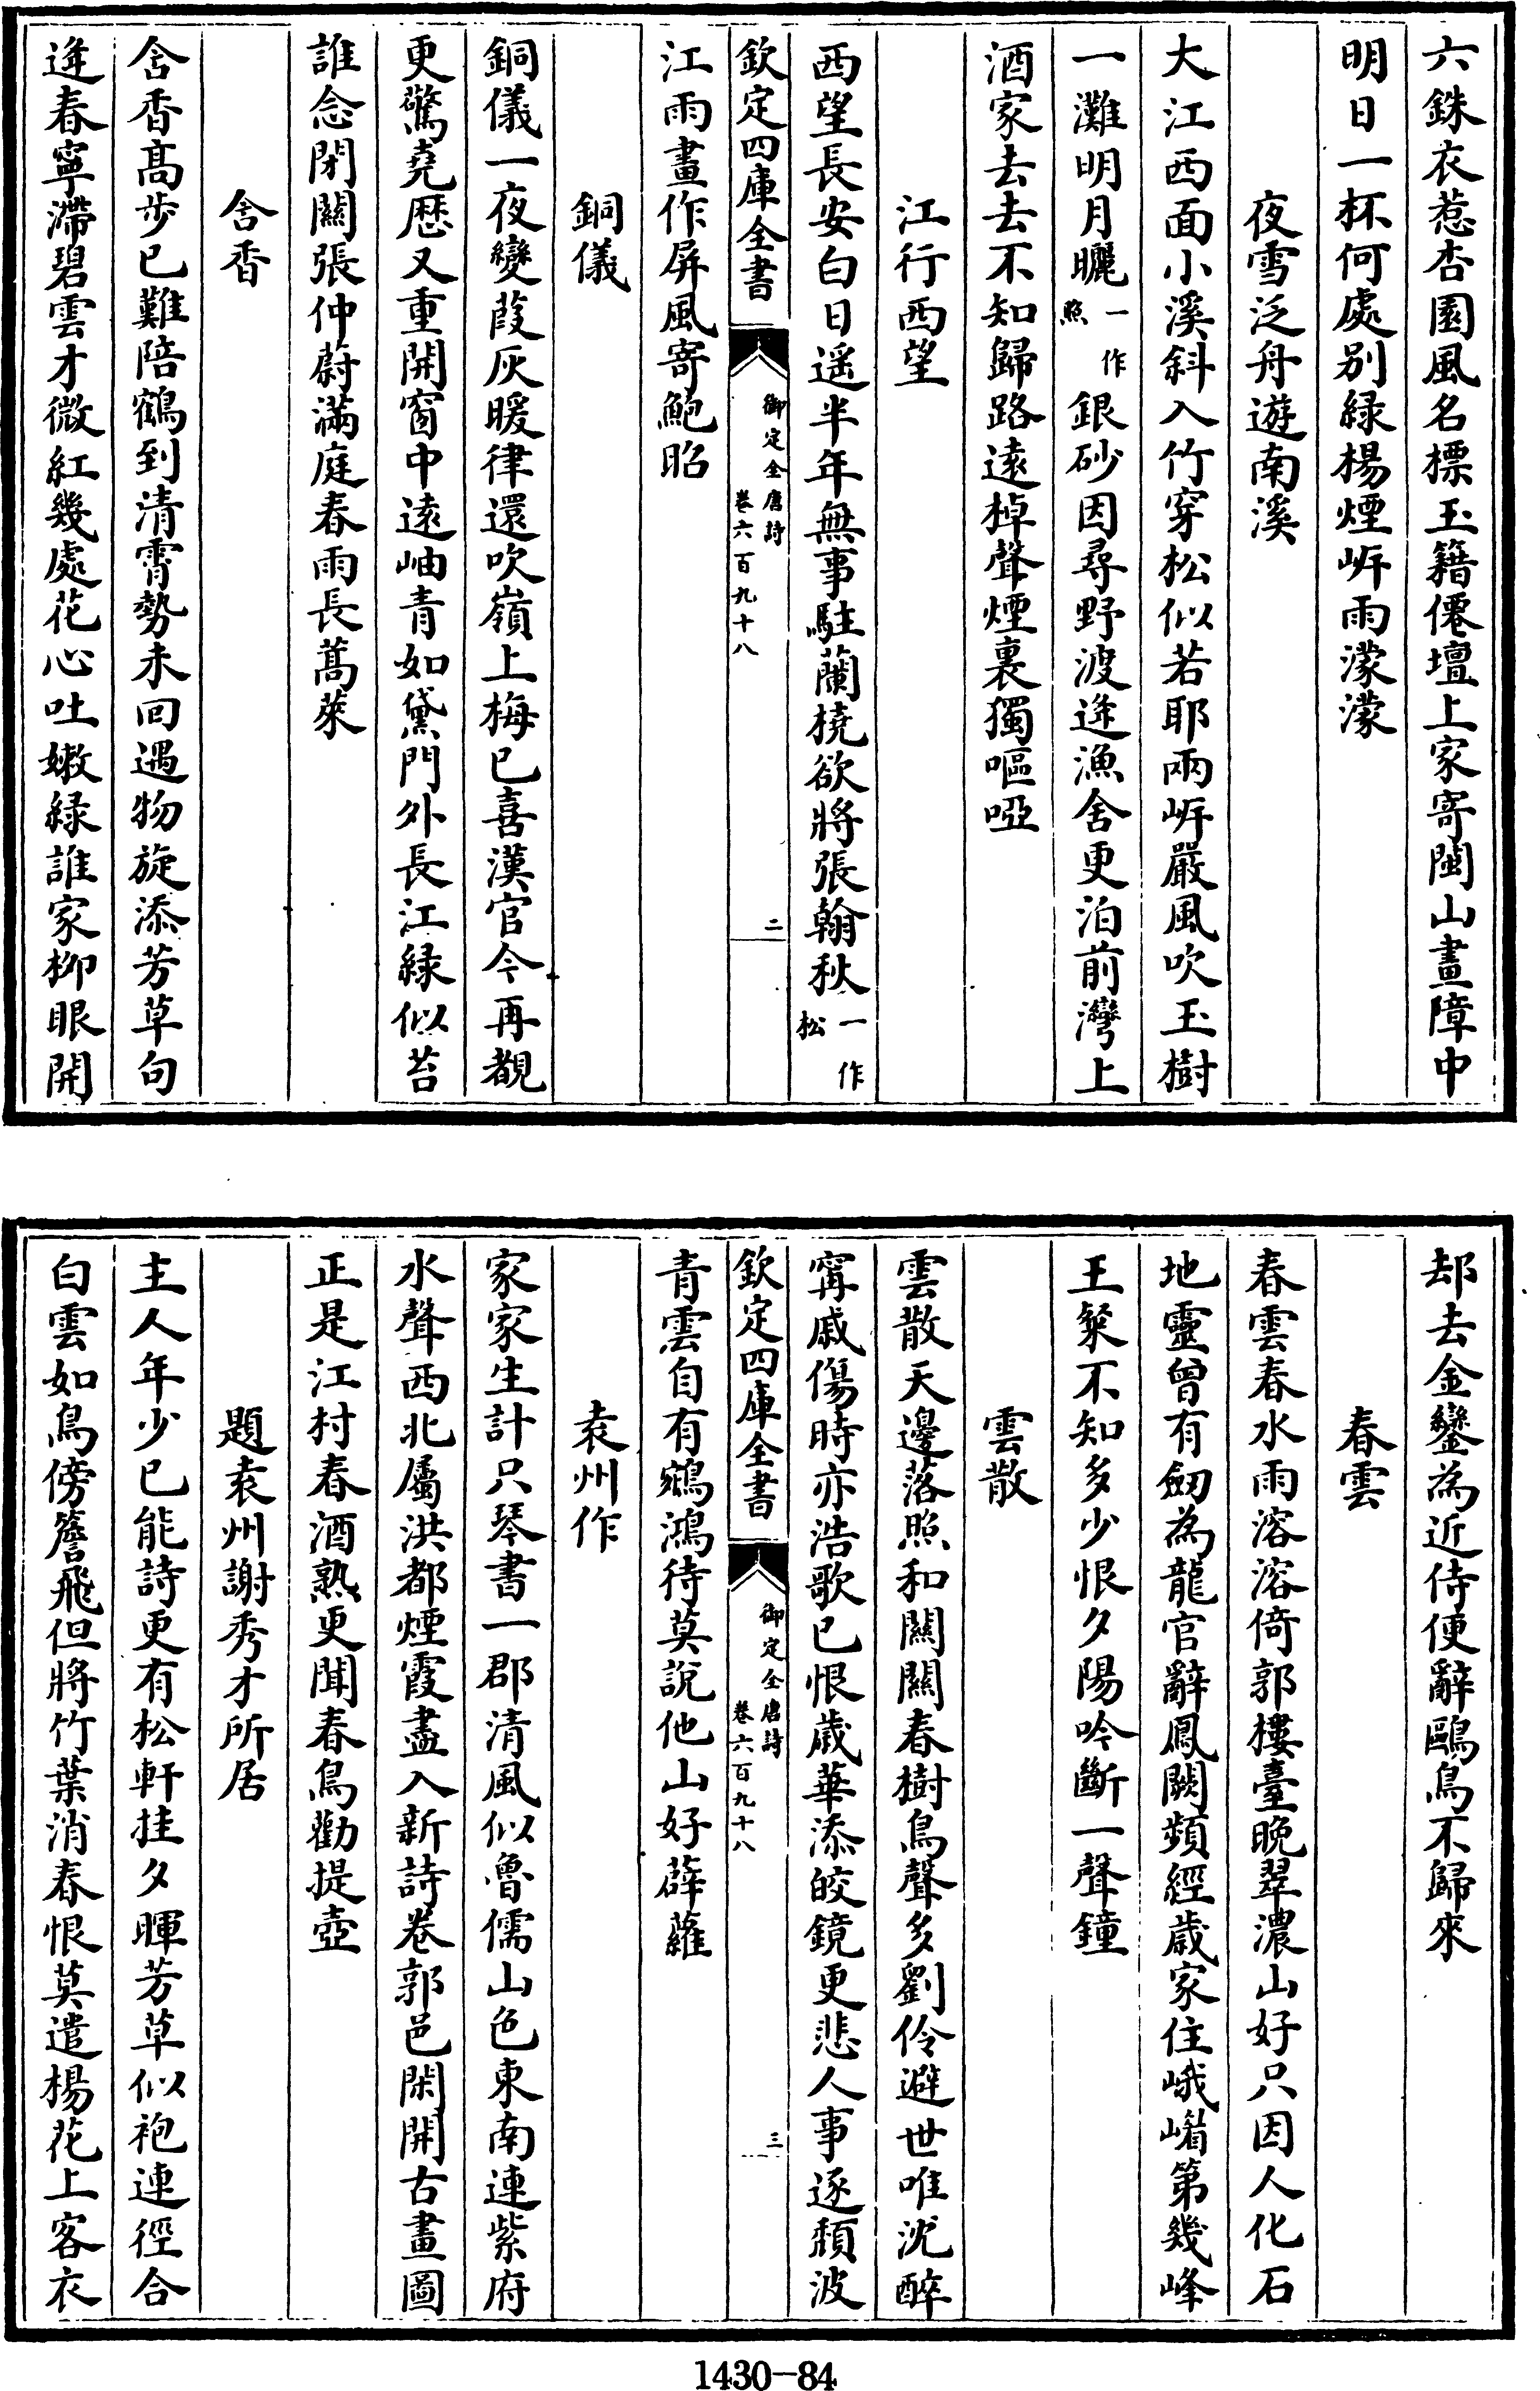 六銖衣惹杏園風名標玉籍僊壇上家寄閩山畫障中
明日一杯何處别緑楊煙岍雨濛濛
夜雪泛舟遊南溪
大江西面小溪斜入竹穿松似若耶兩岍嚴風吹玉樹
一灘明月曬一作照銀砂因尋野渡逢漁舍更泊前灣上
酒家去去不知歸路遠棹聲煙裏獨嘔啞
江行西望
西望長安白日遥半年無事駐蘭橈欲將張翰秋一作松
欽定四庫全書
御定全唐詩
卷六百九十八
二
江雨畫作屏風寄鮑昭
銅儀
銅儀一夜變葭灰暖律還吹嶺上梅已喜漢官今再覩
更驚堯厯又重開窗中遠岫青如黛門外長江緑似苔
誰念閉關張仲蔚滿庭春雨長蒿萊
含香
含香髙步已難陪鶴到清霄勢未回遇物旋添芳草句
逢春寧滯碧雲才微紅幾處花心吐嫩緑誰家柳眼開
却去金鑾為近侍便辭鷗鳥不歸來
春雲
春雲春水雨溶溶倚郭樓臺晚翠濃山好只因人化石
地靈曾有劒為龍官辭鳳闕頻經歳家住峨嵋第幾峰
王粲不知多少恨夕陽吟斷一聲鐘
雲散
雲散天邊落照和關關春樹鳥聲多劉伶避世唯沈醉
甯戚傷時亦浩歌已恨歳華添皎鏡更悲人事逐頽波
欽定四庫全書
御定全唐詩
卷六百九十八
三
青雲自有鵷鴻待莫說他山好薜蘿
袁州作
家家生計只琴書一郡清風似魯儒山色東南連紫府
水聲西北屬洪都煙霞盡入新詩卷郭邑閑開古畫圖
正是江村春酒熟更聞春鳥勸提壺
題袁州謝秀才所居
主人年少已能詩更有松軒挂夕暉芳草似袍連徑合
白雲如鳥傍簷飛但將竹葉消春恨莫遣楊花上客衣
1430-84